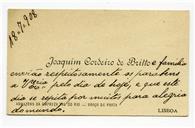 18-7-908
Joaquim Cordeiro de Britto e familia
envião respeitosamente os parabens
a V. Ex.ª pelo dia de hoje, e que este
dia se repita por muitos para alegria
do mundo.
BRAÇO DE PRATA
LISBOA